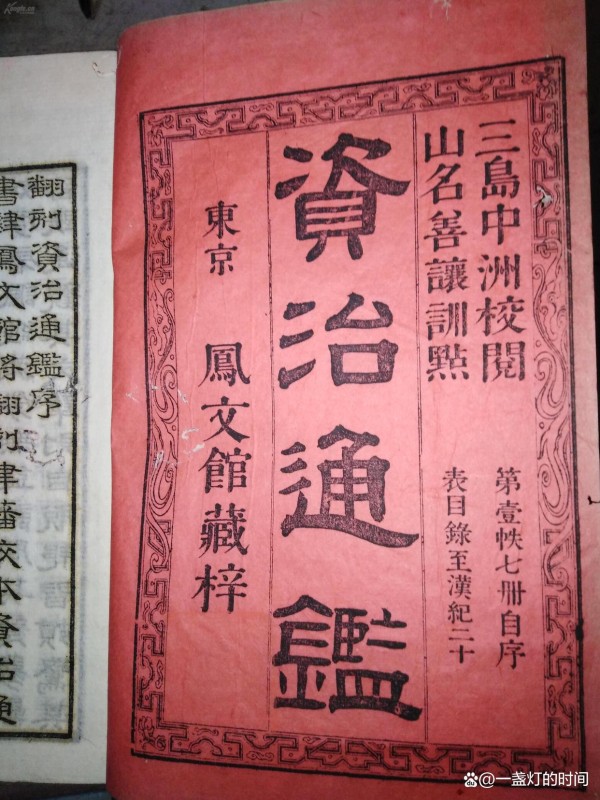 三島中洲校閱
山名善讓訓點
第壹帙七册自序
表目錄至漢紀二十
資治通鑑
東京 鳳文館藏梓
翻刻資治通鑑序
書肆鳳文館將翻刻津藩校本資治通
一盏灯的时间